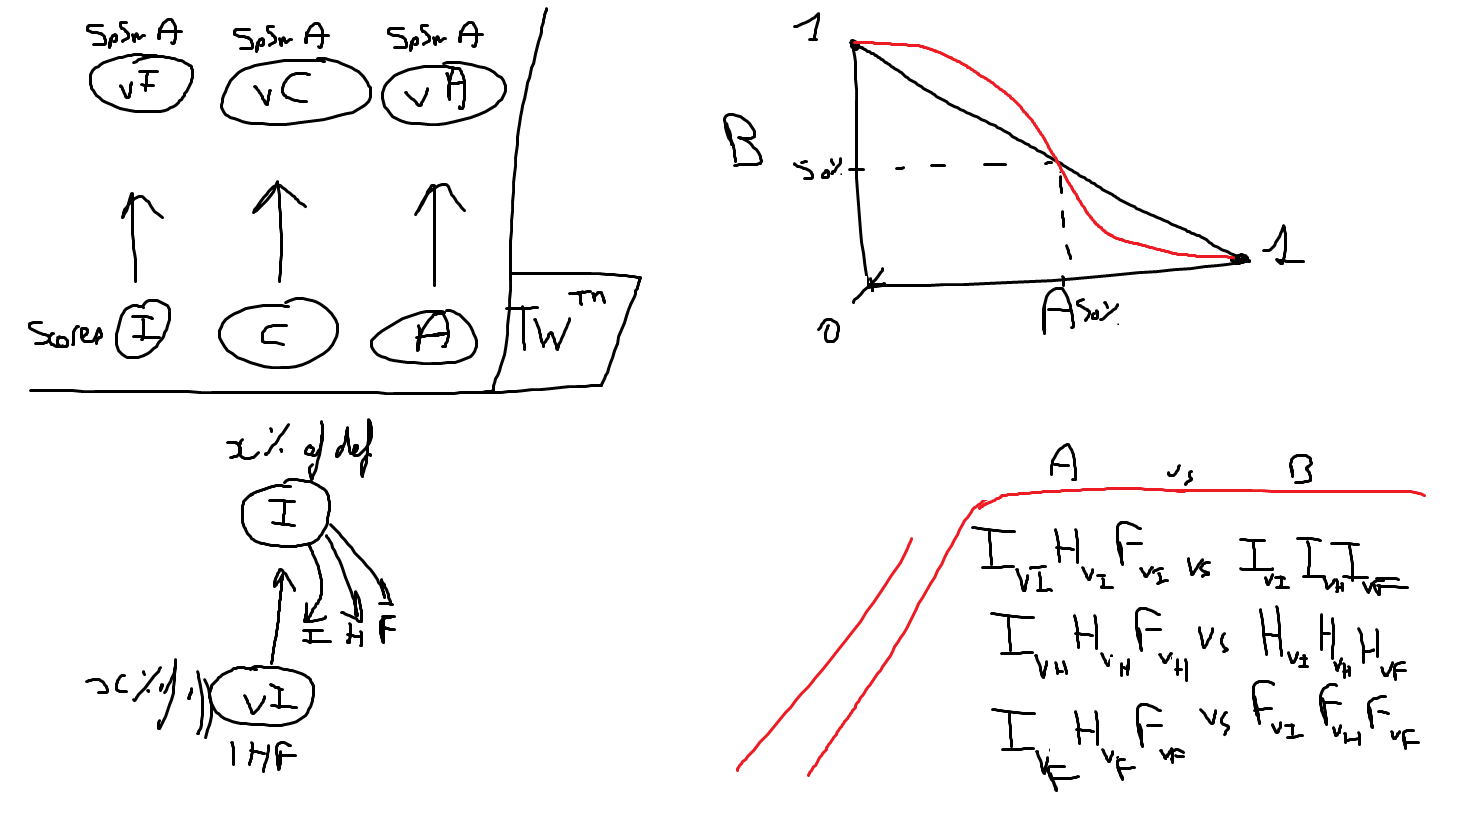 SpSm A SpSm A SpSm A
vI vC vA
Scores I C A TW™
x% of def
I
I H F
x%
vI
IHF
1
B
50%
1
0
A 50%
A vs B
IvI HvI FvI vs IvI IvH IvF
IvH HvH FvH vs HvI HvH HvF
IvF HvF FvF vs FvI FvH FvF